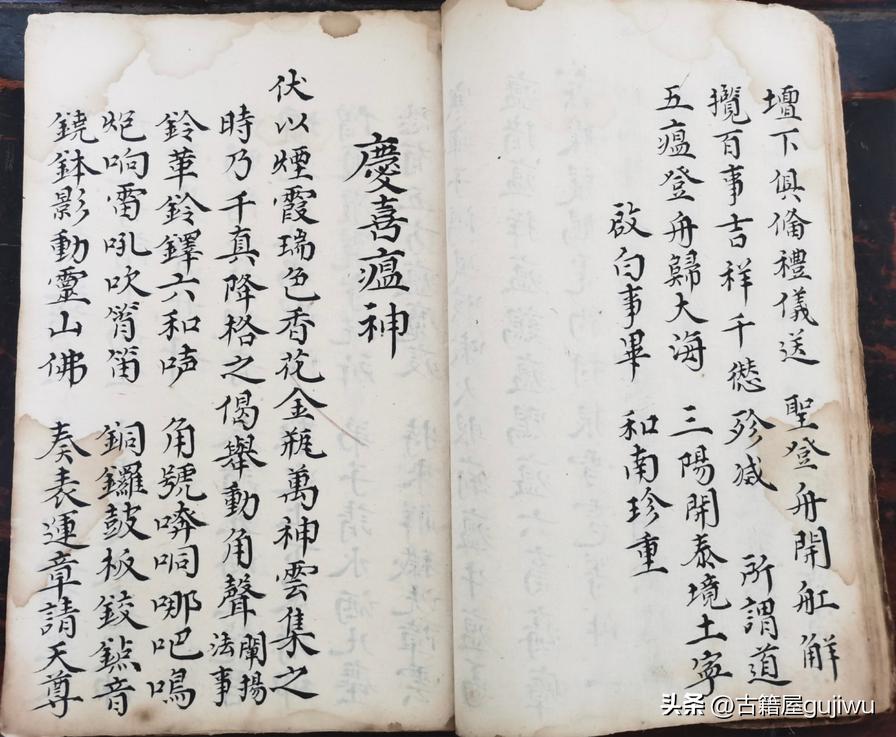 壇下俱俻禮儀送　聖登舟開舡觧
攬百事吉祥千愆殄减　所謂道
五瘟登舟歸大海　三陽開泰境土寧
啟白事畢　和南珍重
慶喜瘟神
伏以煙霞瑞色香花金瓶萬神雲集之
時乃千真降格之偈舉動角聲闡揚法事
鈴華鈴鐸六和声　角號嗙哃哪吧鳴
炮响雷吼吹笛　銅鑼鼓板鉸音
鐃鉢影動靈山佛　奏表運章請天尊
头条 @古籍屋gujiwu